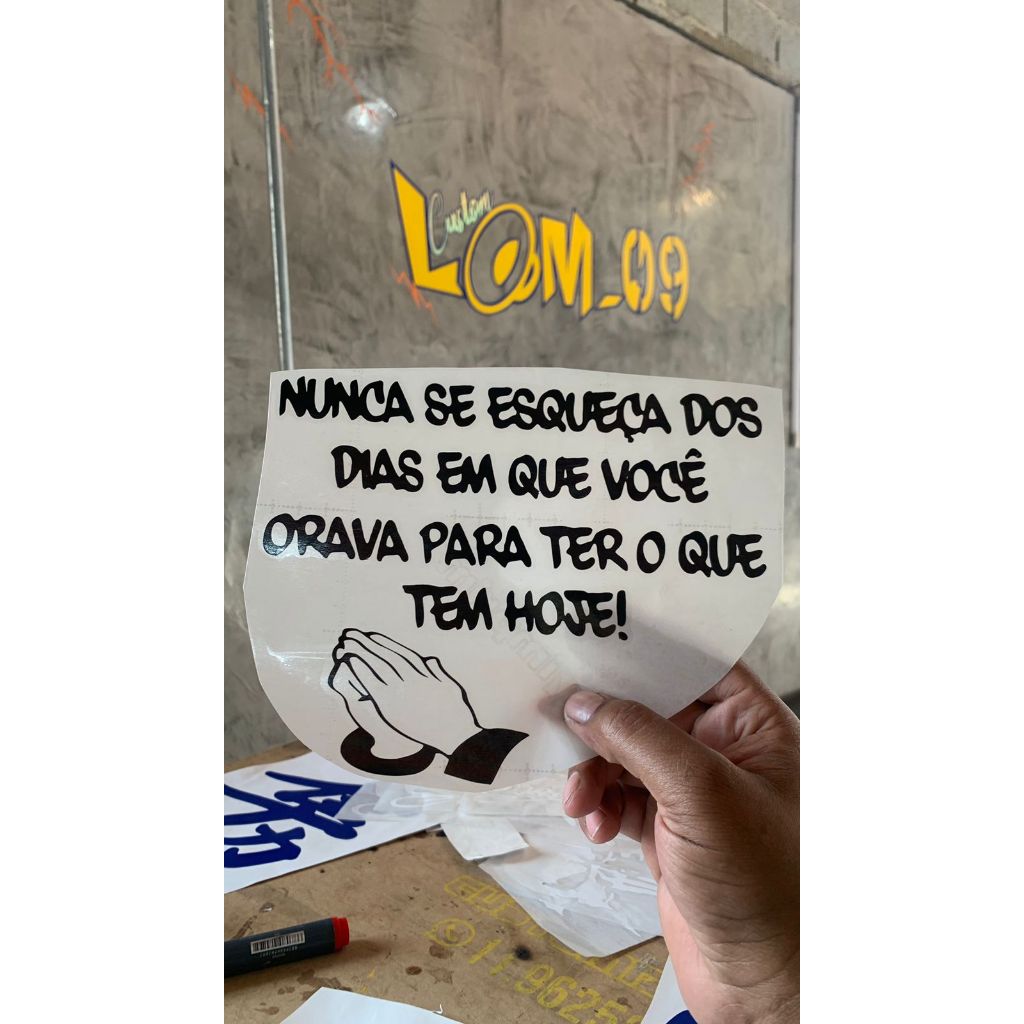 Custom
L@M_09
NUNCA SE ESQUEÇA DOS
DIAS EM QUE VOCÊ
ORAVA PARA TER O QUE
TEM HOJE!